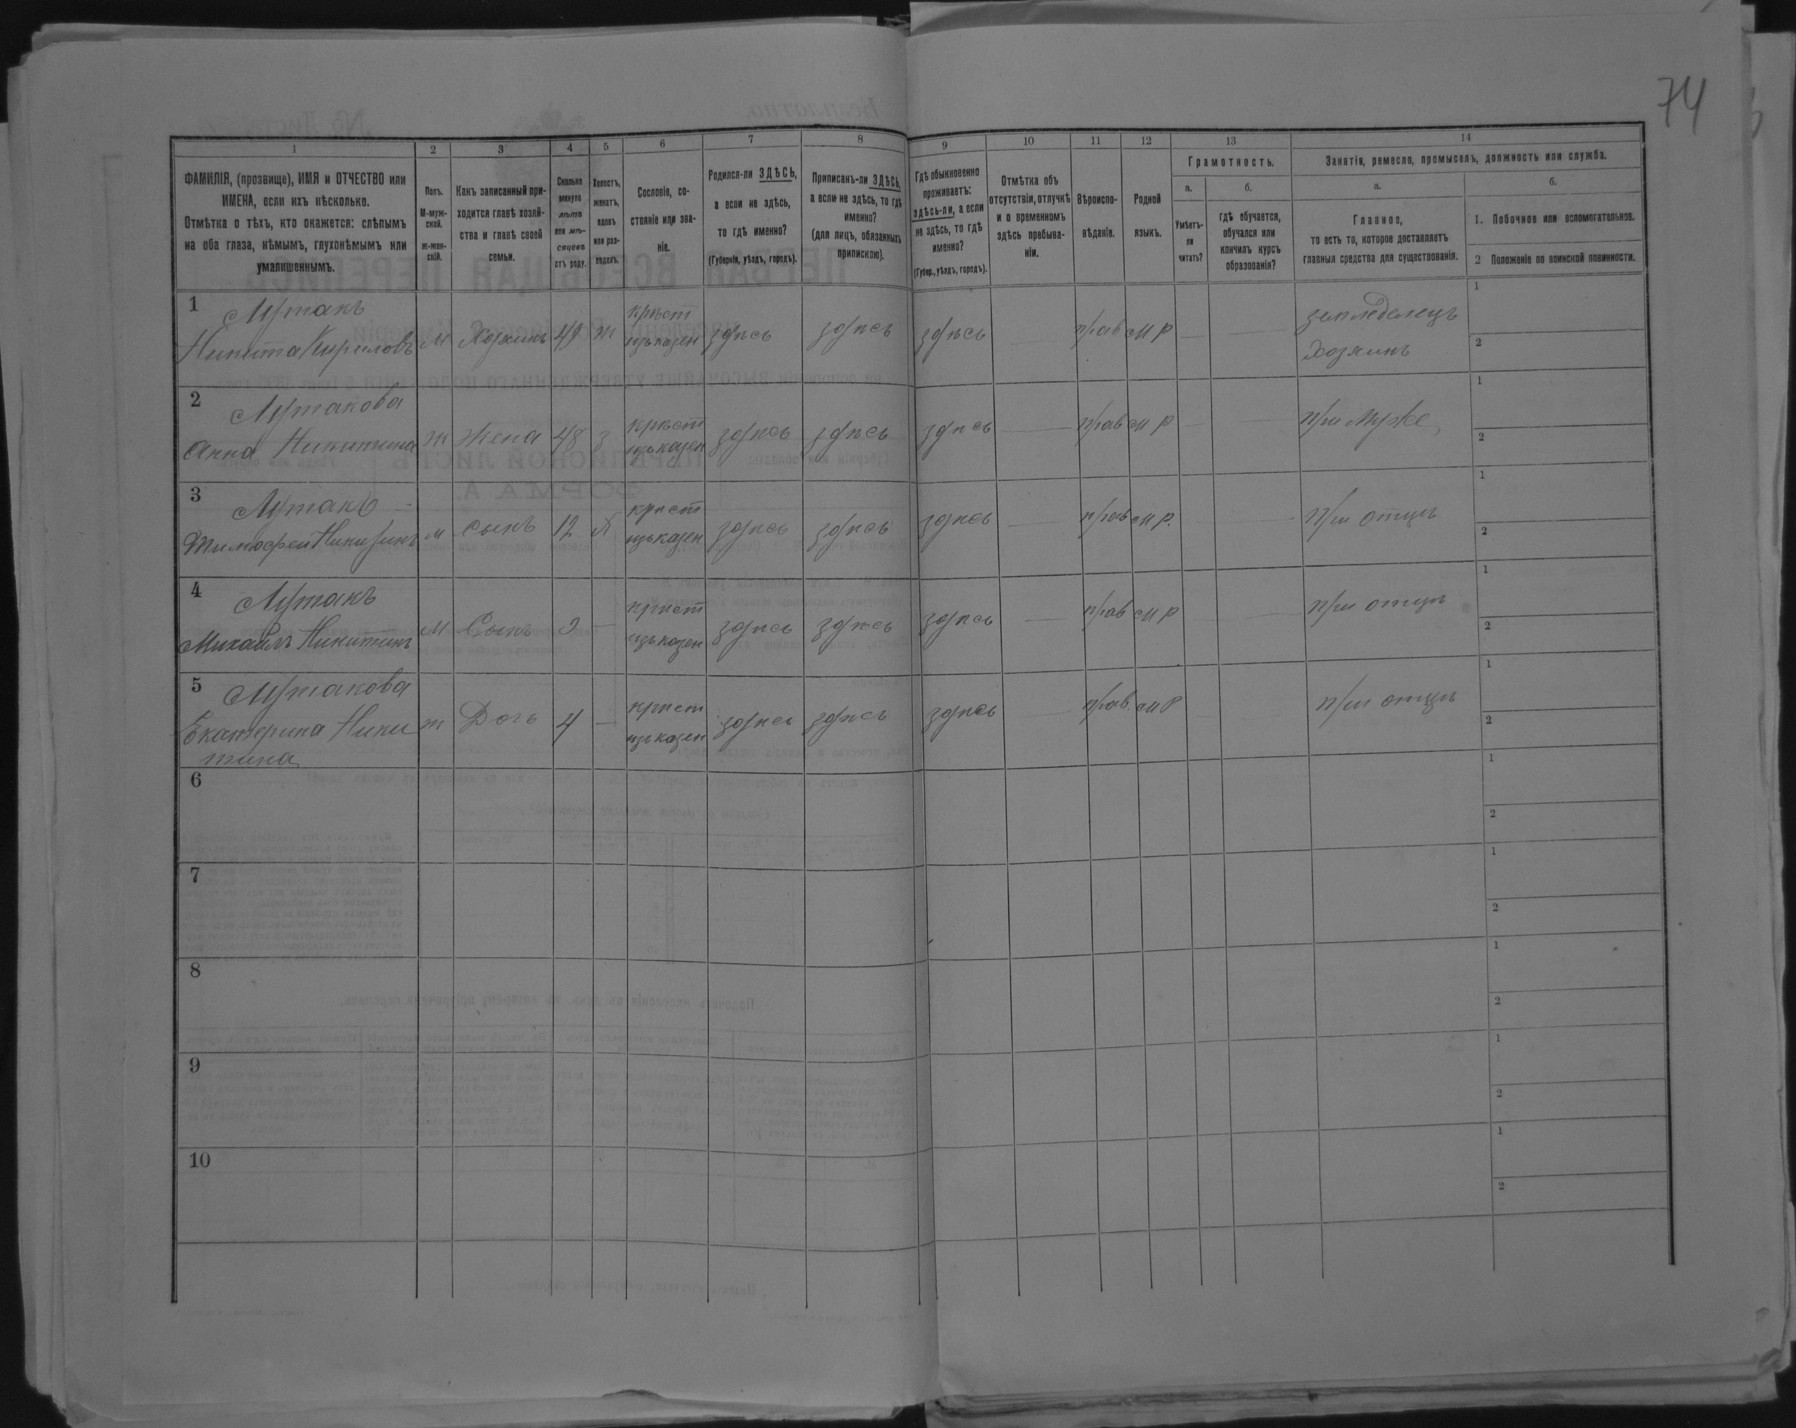 74
1 2 3 4 5 6 7 8 9 10 11 12 13 14
ФАМИЛІЯ, (прозвище), ИМЯ и ОТЧЕСТВО или
ИМЕНА, если ихъ нѣсколько.
Отмѣтка о тѣхъ, кто окажется: слѣпымъ
на оба глаза, нѣмымъ, глухонѣмымъ или
умалишеннымъ.
Полъ.
М-муж-
ской.
ж-жен-
скій.
Какъ записанный при-
ходится главѣ хозяй-
ства и главѣ своей
семьи.
Сколько
минуло
лѣтъ
или мѣ-
сяцевъ
отъ роду.
Холостъ,
женатъ,
вдовъ
или раз-
веденъ.
Сословіе, со-
стояніе или зва-
ніе.
Родился-ли ЗДѢСЬ,
а если не здѣсь,
то гдѣ именно?
(Губернія, уѣздъ, городъ).
Приписанъ-ли ЗДѢСЬ,
а если не здѣсь, то гдѣ
именно?
(для лицъ, обязанныхъ
припискою).
Гдѣ обыкновенно
проживаетъ:
здѣсь-ли, а если
не здѣсь, то гдѣ
именно?
(Губер., уѣздъ, городъ).
Отмѣтка объ
отсутствіи, отлучкѣ
и о временномъ
здѣсь пребыва-
ніи.
Вѣроиспо-
вѣданіе.
Родной
языкъ.
Грамотность.
а.
Умѣетъ-
ли
читать?
б.
гдѣ обучается,
обучался или
кончилъ курсъ
образованія?
Занятія, ремесло, промыселъ, должность или служба.
а.
Главное,
то есть то, которое доставляетъ
главныя средства для существованія.
б.
1. Побочное или вспомогательное.
2 Положеніе по воинской повинности.
1
Никита Кириловъ м Хозяинъ 49 ж
крѣст
изъказен
здѣсь здѣсь здѣсь — прав м р — —
земледелецъ
Хозяинъ
1
2
2
Анна Никитина ж Жена 48 з
крѣст
изъказен
здѣсь здѣсь здѣсь — прав м р — —
при муже
1
2
3
м сынъ 12 х
крѣст
изъказен
здѣсь здѣсь здѣсь — прав м р. — —
при отцѣ
1
2
4
Михаилъ Никитинъ м Сынъ 9 —
крѣст
изъказен
здѣсь здѣсь здѣсь — прав м р — —
при отцѣ
1
2
5
Екатерина Ники
тина
ж Дочь 4 —
крѣст
изъказен
здѣсь здѣсь здѣсь — прав. м р — —
при отцѣ
1
2
6
1
2
7
1
2
8
1
2
9
1
2
10
1
2